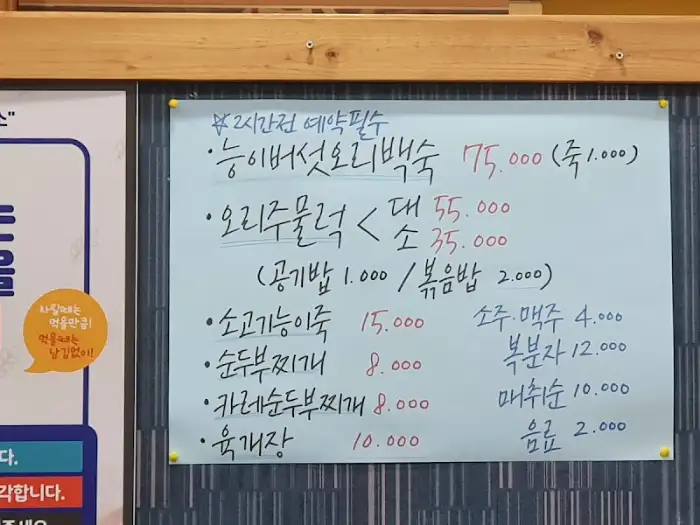 ☆2시간전 예약필수
·능이버섯오리백숙 75.000 (죽1.000)
·오리주물럭 < 대 55.000
소 35.000
(공기밥 1.000 / 볶음밥 2.000)
·소고기능이죽 15.000
·순두부찌개 8.000
·카레순두부찌개 8.000
·육개장 10.000
소주·맥주 4.000
복분자 12.000
매취순 10.000
음료 2.000
차릴때는
먹을만큼!
먹을때는
남김없이!
다.
각합니다.